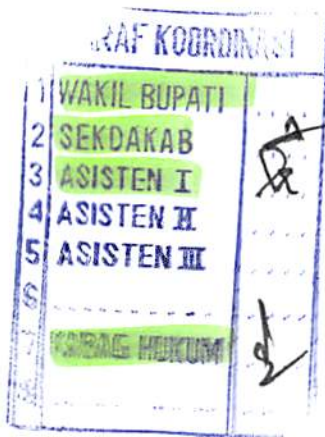 RAF KOORDINASI
1 WAKIL BUPATI
2 SEKDAKAB
3 ASISTEN I
4 ASISTEN II
5 ASISTEN III
6
KABAG HUKUM